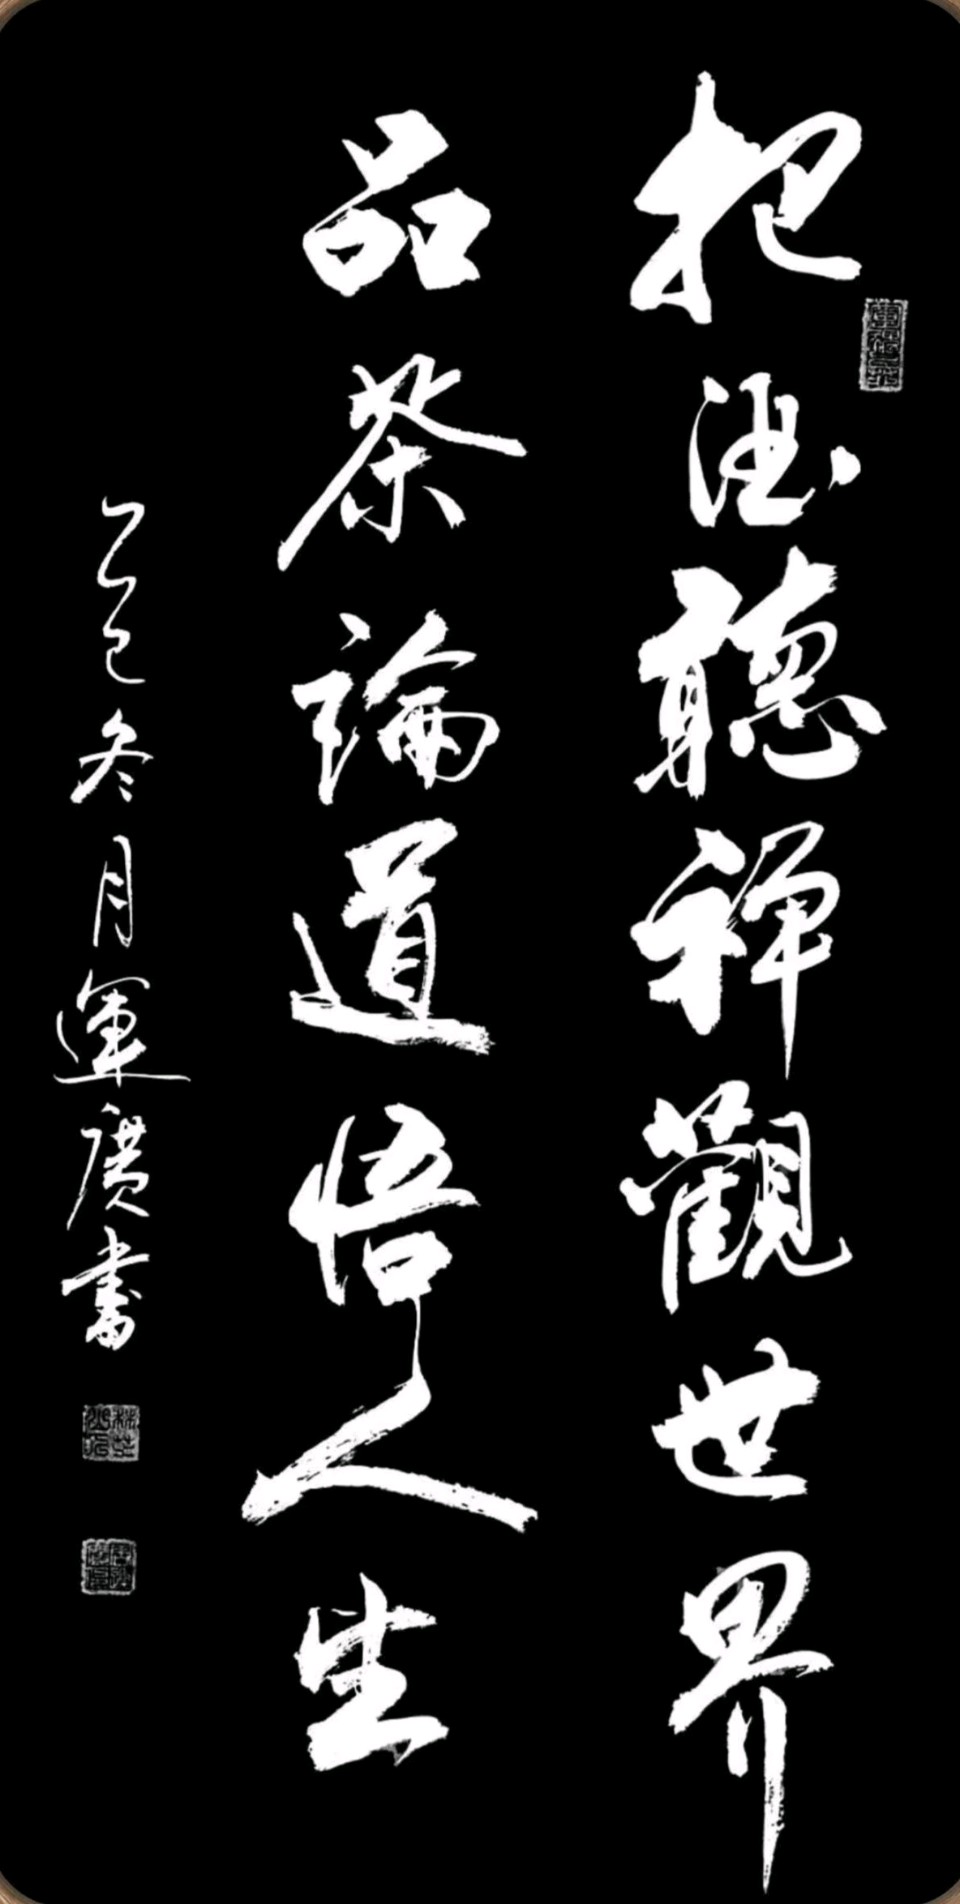 把酒聽禪觀世界
品茶論道悟人生
乙巳冬月運廣書